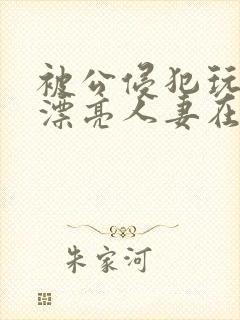 被公侵犯玩
漂亮人妻在
朱家河